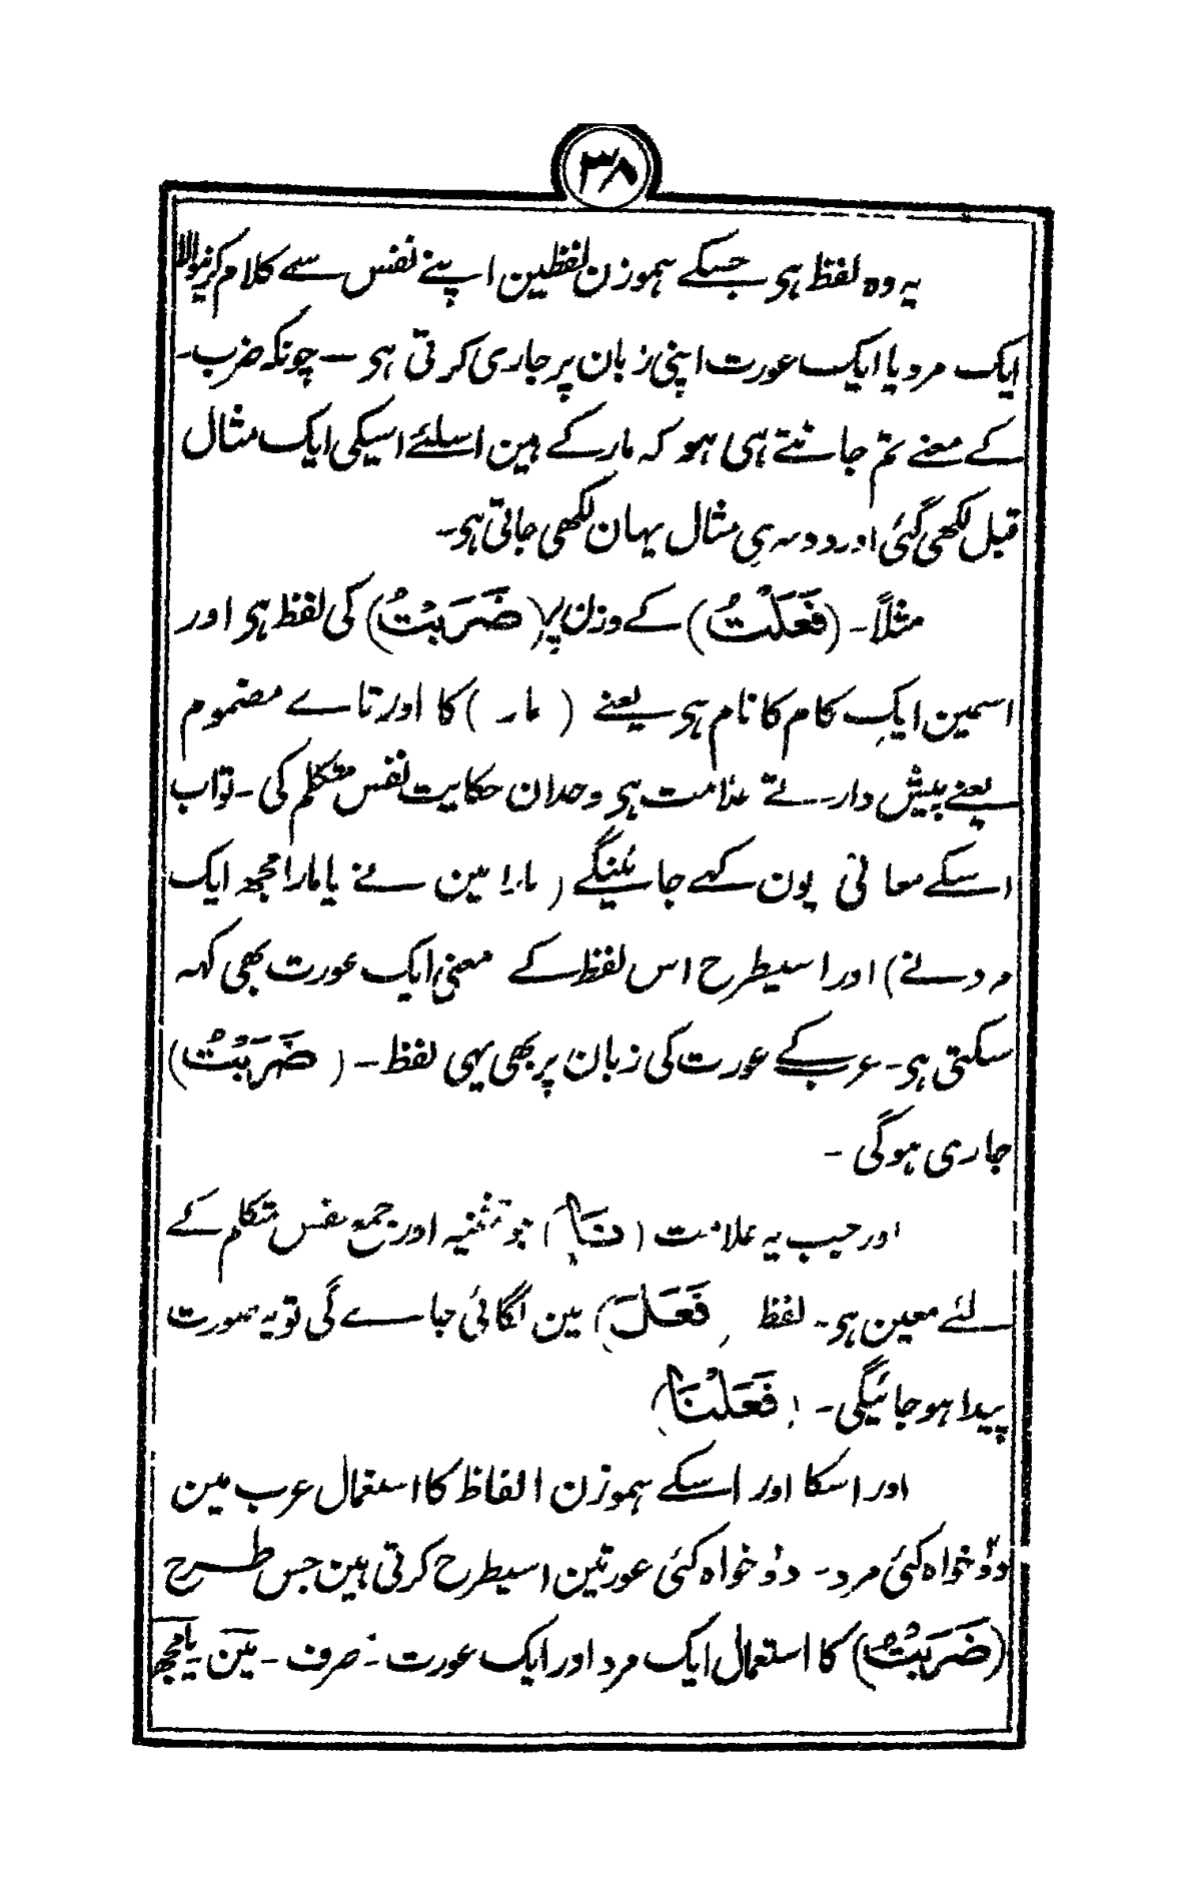 ۳۸
یہ وہ لفظ ہی جسکے ہموزن لفظین اپنے نفس سے کلام کرنیوالا
ایک مرد یا ایک عورت اپنی زبان پر جاری کرتی ہی — چونکہ ضرب-
کے معنے تم جانتے ہی ہو کہ مار کے ہین اسلئے اسیکی ایک مثال
قبل لکھی گئی اور دوسری مثال یہان لکھی جاتی ہی-
مثلاً- (فَعَلْتُ) کے وزن پر (ضَرَبْتُ) کی لفظ ہی اور
اسمین ایک کام کا نام ہی یعنے ( مار ) کا اور تاے مضموم
یعنے پیش دار تے علامت ہی وحدان حکایت نفس متکلم کی - تو اب
اسکے معانی یون کہے جائینگے ( مارا مین نے یا مارا مجھ ایک
مرد نے) اور اسیطرح اس لفظ کے معنی ایک عورت بھی کہہ
سکتی ہی- عرب کے عورت کی زبان پر بھی یہی لفظ - ( ضَرَبْتُ )
جاری ہوگی -
اور جب یہ علامت ( نَا ) جو تثنیہ اور جمع نفس متکلم کے
لئے معین ہی- لفظ ( فَعَلَ ) مین لگائی جاے گی تو یہ صورت
پیدا ہو جائیگی - ( فَعَلْنَا )
اور اسکا اور اسکے ہموزن الفاظ کا استعمال عرب مین
دو خواہ کئی مرد - دو خواہ کئی عورتین اسیطرح کرتی ہین جس طرح
(ضَرَبْتُ) کا استعمال ایک مرد اور ایک عورت - صرف - مین - یا مجھ